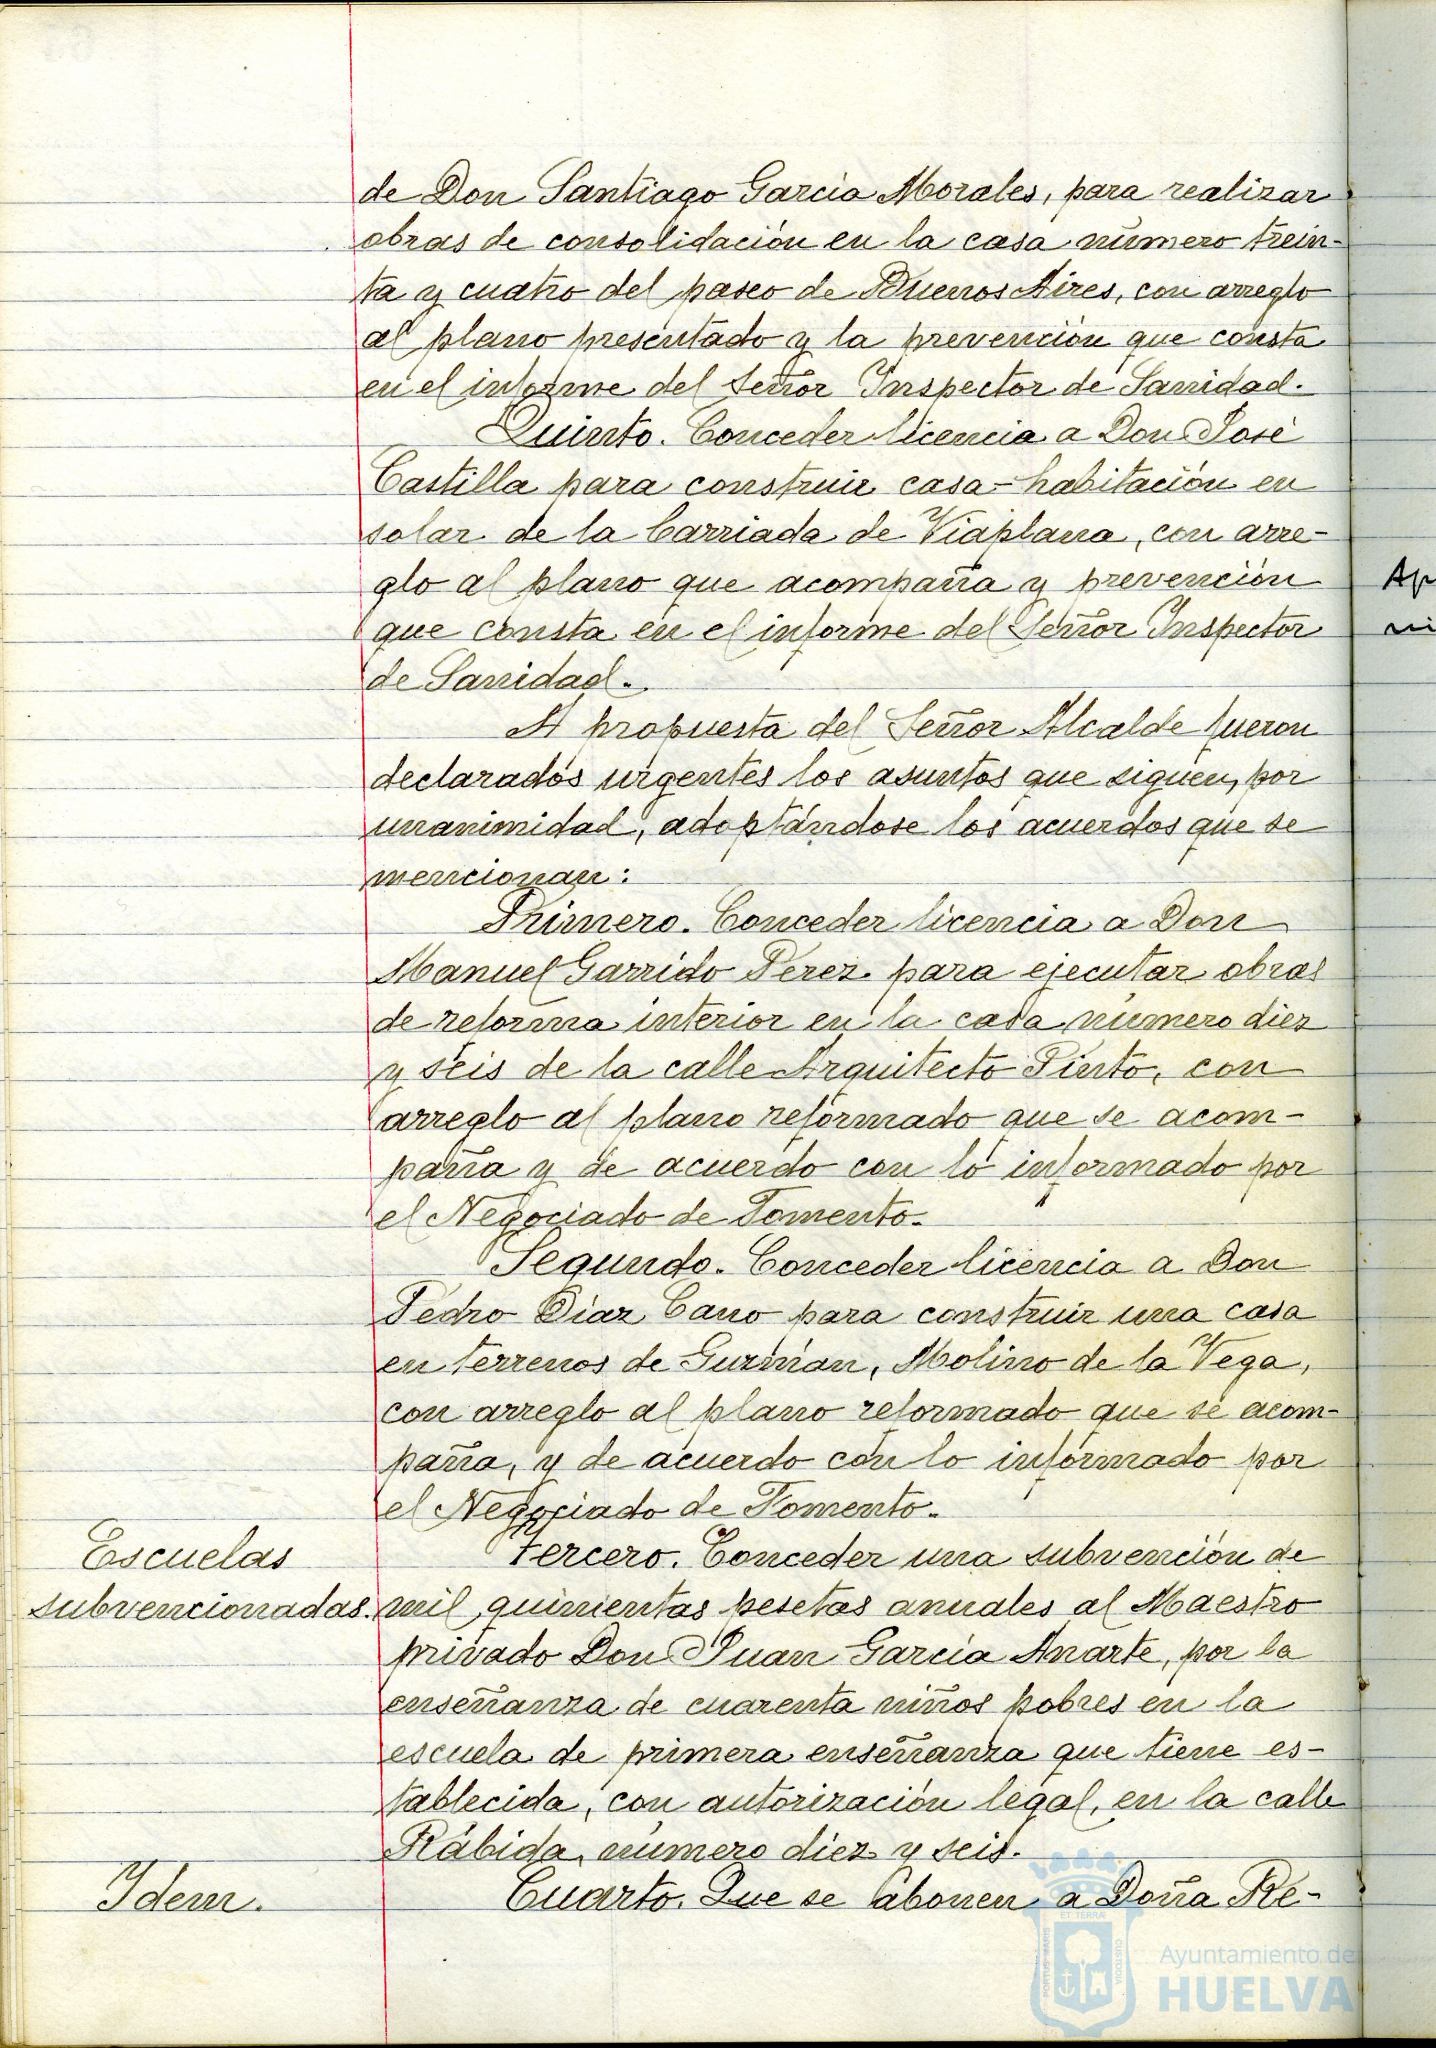 de Don Santiago García Morales, para realizar
obras de consolidación en la casa número trein-
ta y cuatro del paseo de Buenos Aires, con arreglo
al plano presentado y la prevención que consta
en el informe del Señor Inspector de Sanidad.
Quinto. Conceder licencia a Don José
Castilla para construir casa-habitación en
solar de la barriada de Viaplana, con arre-
glo al plano que acompaña y prevención
que consta en el informe del Señor Inspector
de Sanidad.
A propuesta del Señor Alcalde fueron
declarados urgentes los asuntos que siguen, por
unanimidad, adoptándose los acuerdos que se
mencionan:
Primero. Conceder licencia a Don
Manuel Garrido Pérez para ejecutar obras
de reforma interior en la casa número diez
y seis de la calle Arquitecto Pinto, con
arreglo al plano reformado que se acom-
paña y de acuerdo con lo informado por
el Negociado de Fomento.
Segundo. Conceder licencia a Don
Pedro Díaz Cano para construir una casa
en terrenos de Guzmán, Molino de la Vega,
con arreglo al plano reformado que se acom-
paña, y de acuerdo con lo informado por
el Negociado de Fomento.
Escuelas
subvencionadas.
Tercero. Conceder una subvención de
mil quinientas pesetas anuales al Maestro
privado Don Juan García Anarte, por la
enseñanza de cuarenta niños pobres en la
escuela de primera enseñanza que tiene es-
tablecida, con autorización legal, en la calle
Rábida, número diez y seis.
Idem.
Cuarto. Que se abonen a Doña Re-
Ap
ni
PORTUS MARIS
ET TERRÆ
CUSTODIA
Ayuntamiento de
HUELVA